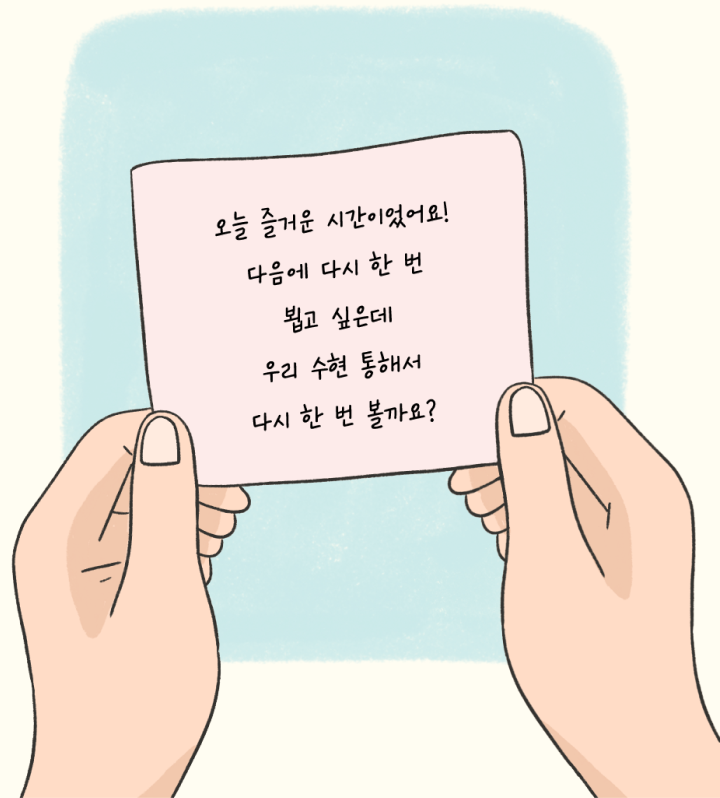 오늘 즐거운 시간이었어요!
다음에 다시 한 번
뵙고 싶은데
우리 수현 통해서
다시 한 번 볼까요?